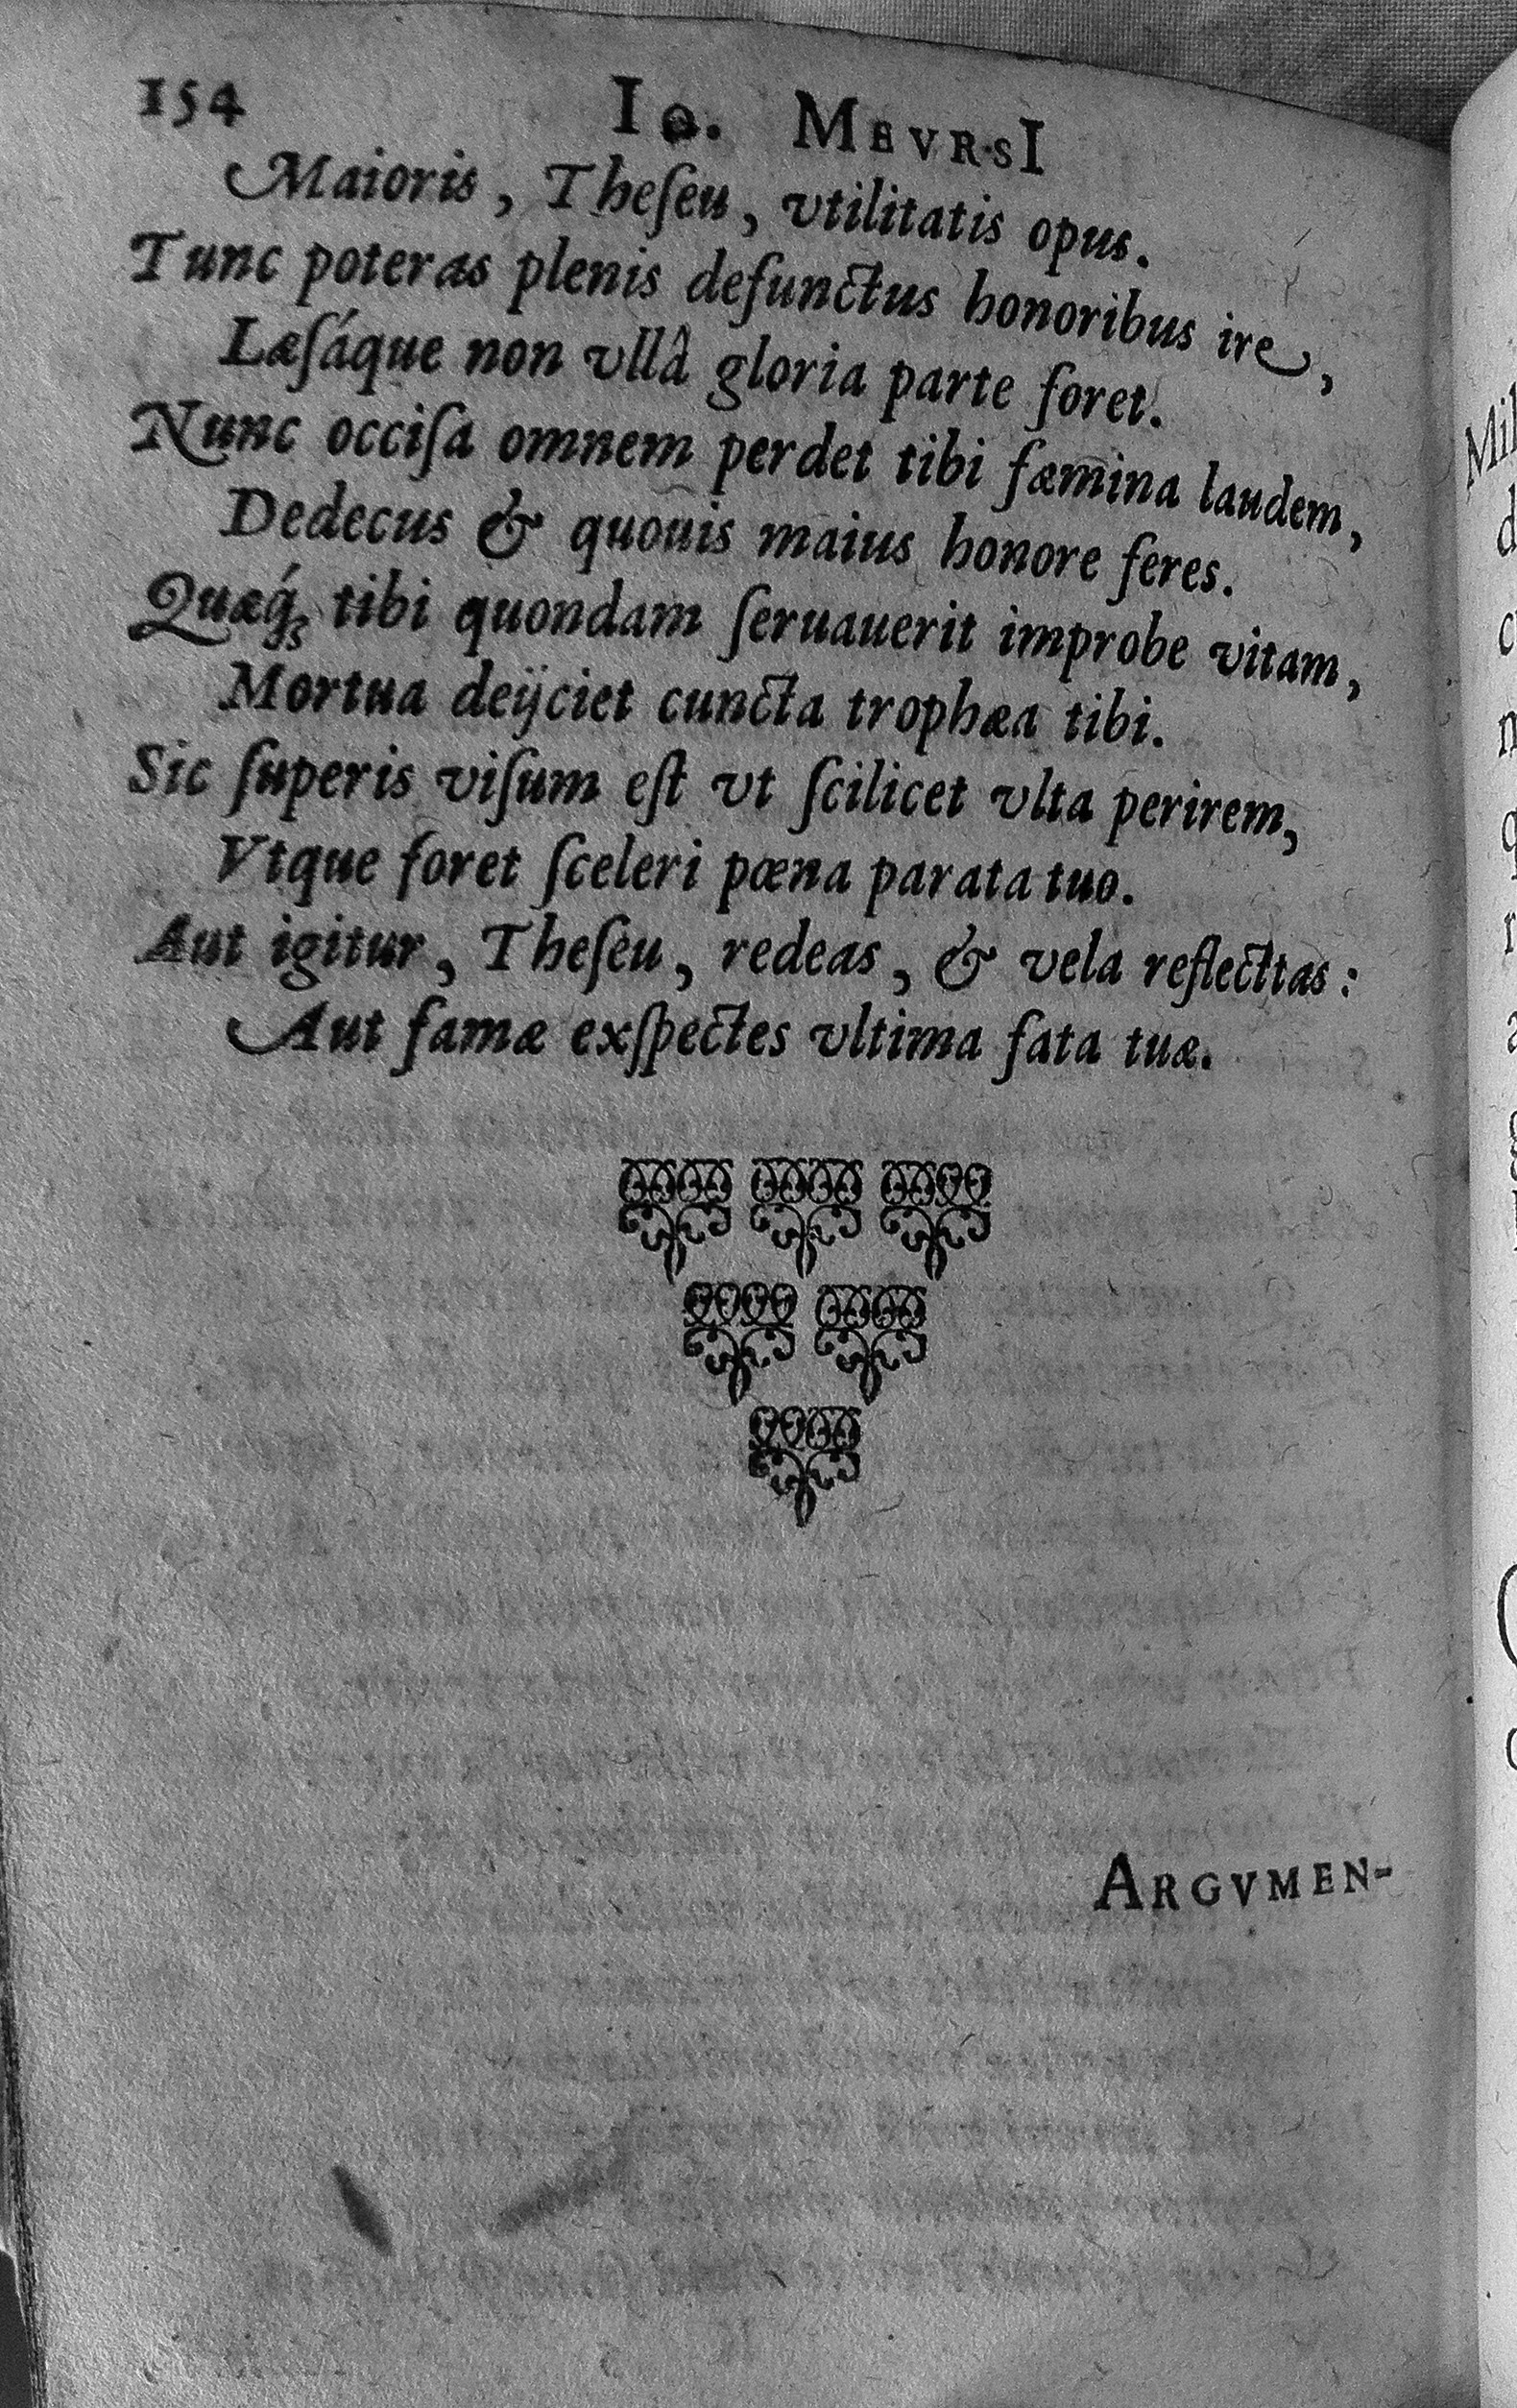 154 Io. MEVRSI
Maioris, Theſeu, vtilitatis opus.
Tunc poteras plenis defunctus honoribus ire,
Læſáque non vllâ gloria parte foret.
Nunc occiſa omnem perdet tibi fæmina laudem,
Dedecus & quouis maius honore feres.
Quæq́ꝫ tibi quondam ſeruauerit improbe vitam,
Mortua deijciet cuncta trophæa tibi.
Sic ſuperis viſum eſt vt ſcilicet vlta perirem,
Vtque foret ſceleri pœna parata tuo.
Aut igitur, Theſeu, redeas, & vela reflectas:
Aut famæ exſpectes vltima fata tuæ.
ARGVMEN-